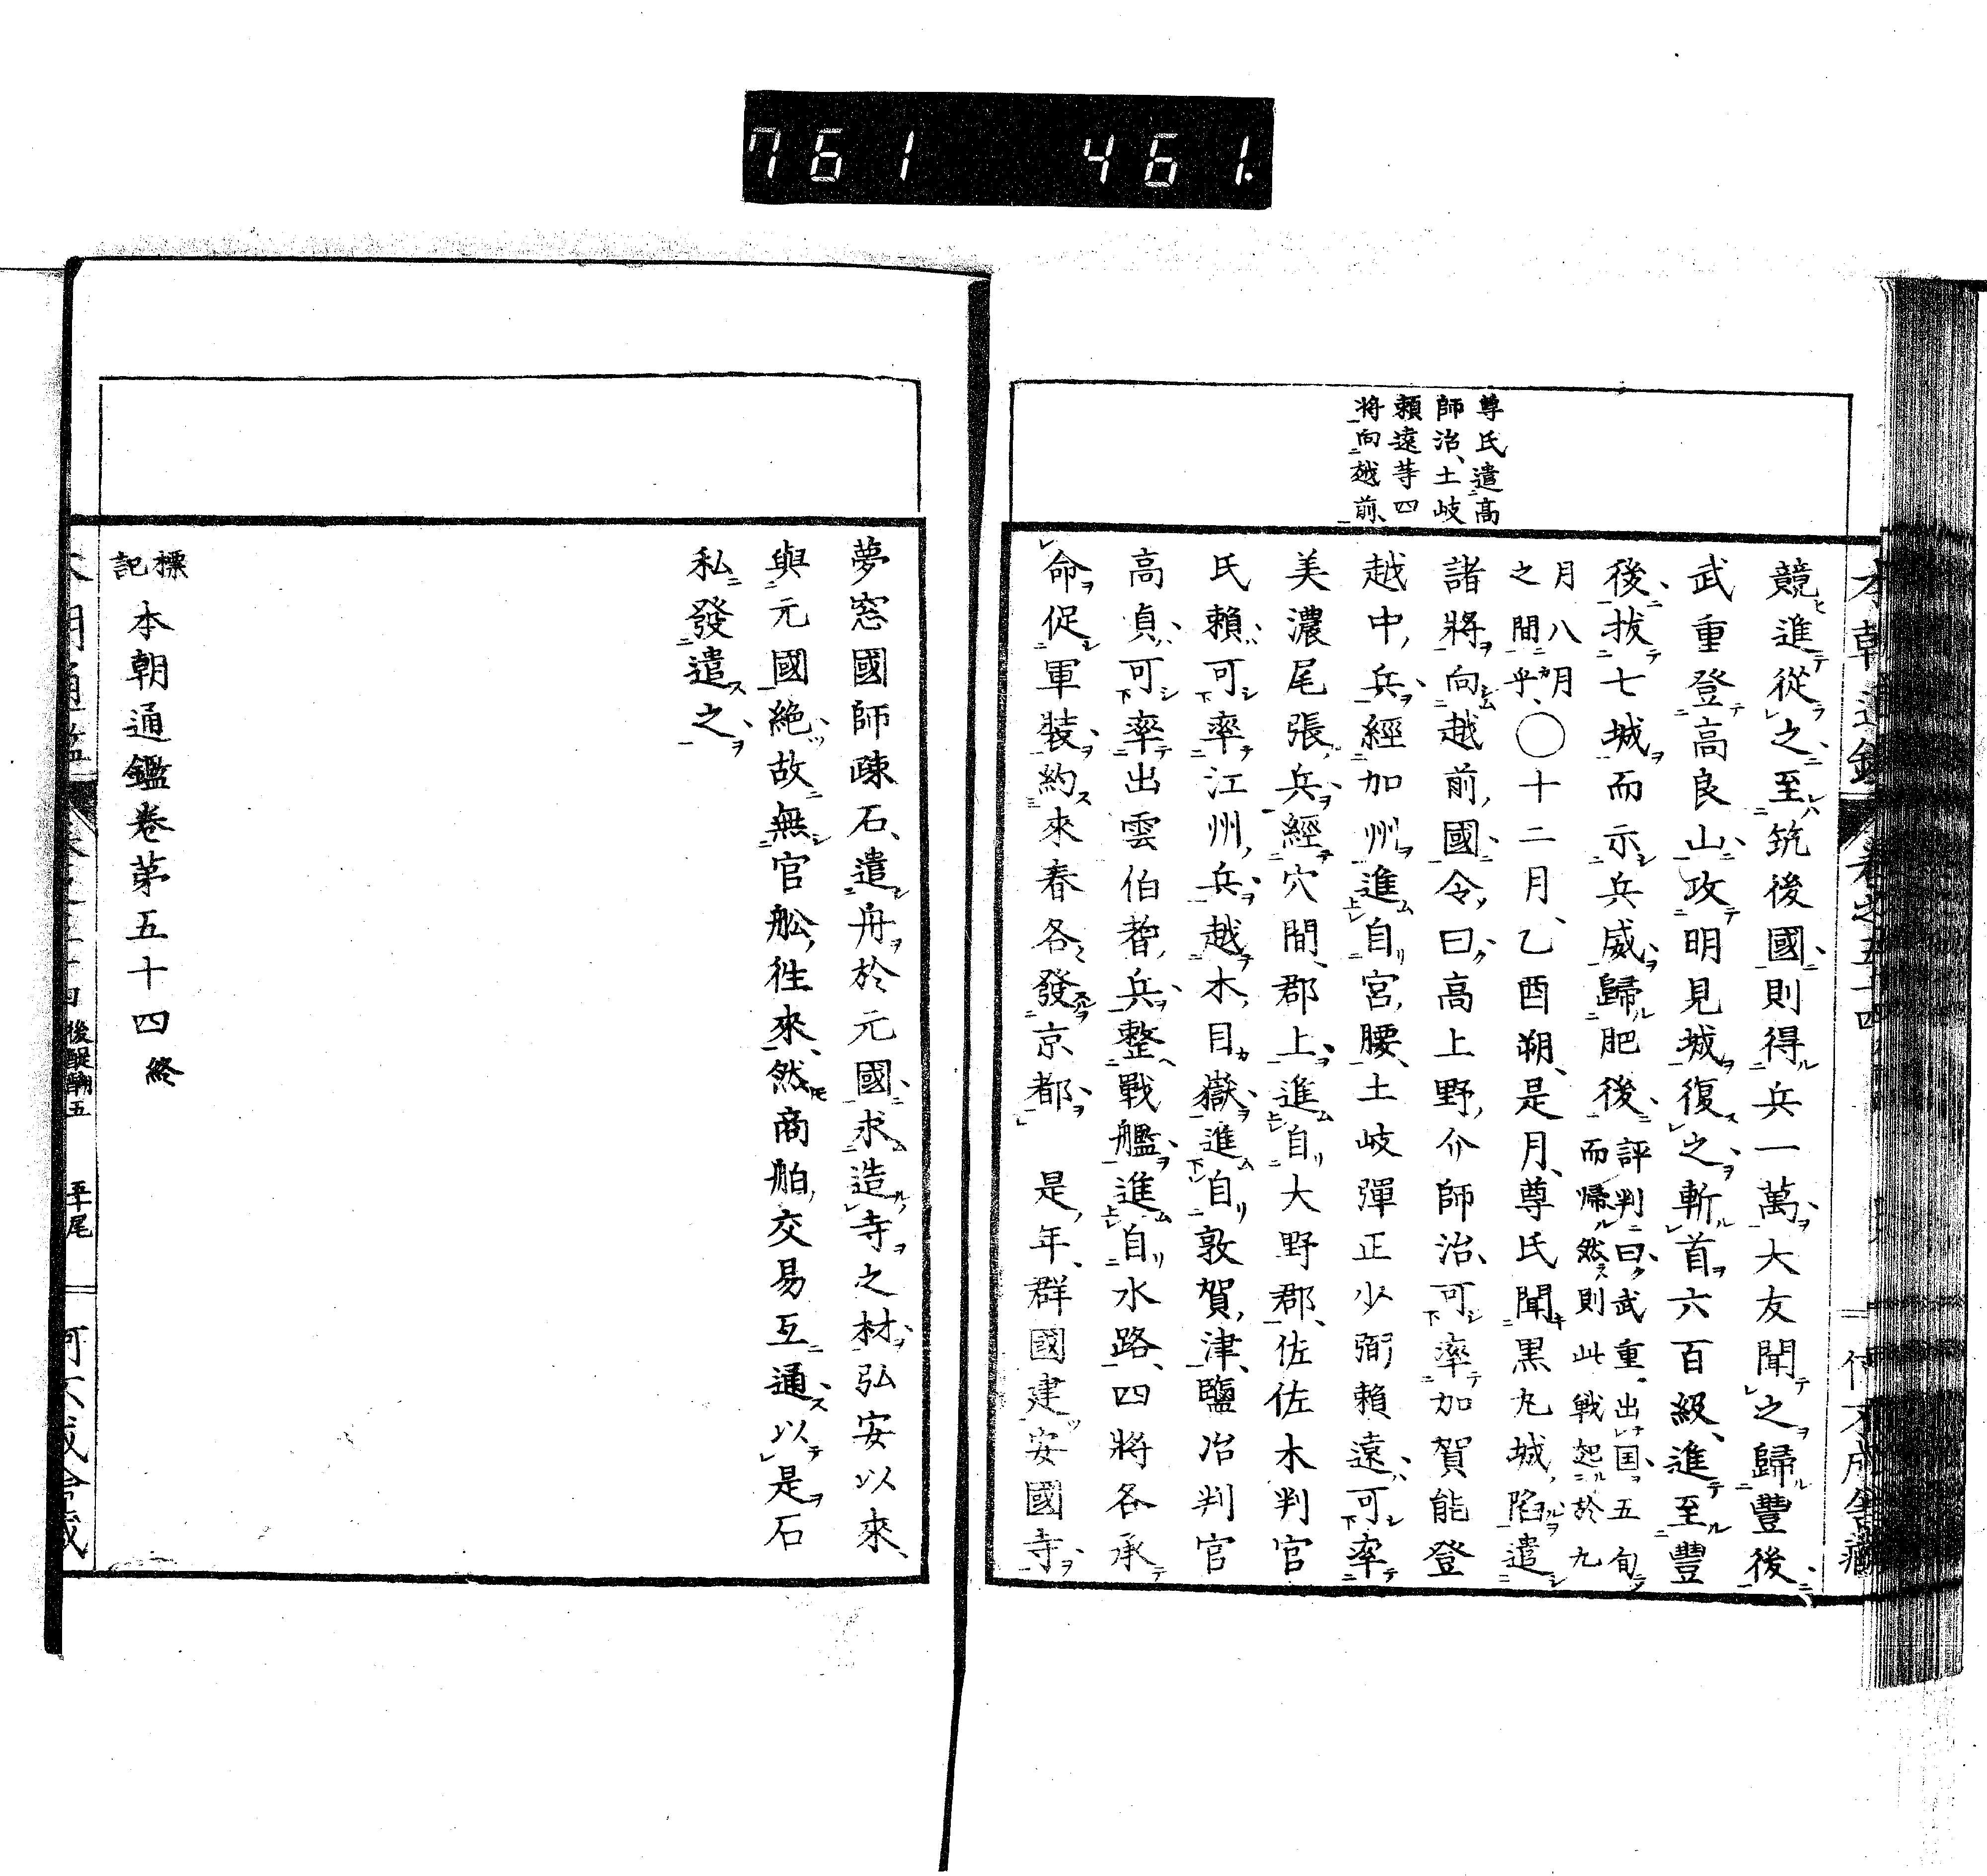 761 461.
尊氏遣高
師治、土岐
頼遠等四
將向越前、
競進從之至筑後國則得兵一萬大友聞之歸豐後
武重登高良山攻明見城復之斬首六百級進至豐
後、拔七城而示兵威歸肥後評判曰武重出国五旬
而帰然則此戰起於九
月八月
之間乎、○十二月乙酉朔、是月、尊氏聞黒丸城陷遣
諸將向越前國令曰高上野介師治可率加賀能登
越中兵經加州進自宮腰土岐彈正少弼頼遠可率
美濃尾張兵經穴間郡上進自大野郡、佐佐木判官
氏頼可率江州兵越木目嶽進自敦賀津、鹽冶判官
高貞可率出雲伯耆兵整戰艦進自水路、四將各承
命促軍装約來春各發京都 是年、群國建安國寺
夢窓國師疎石、遣舟於元國求造寺之材弘安以來、
與元國絶故無官舩往來、然商舶交易互通以是石
私發遣之
標記 本朝通鑑巻第五十四終
後醍醐五